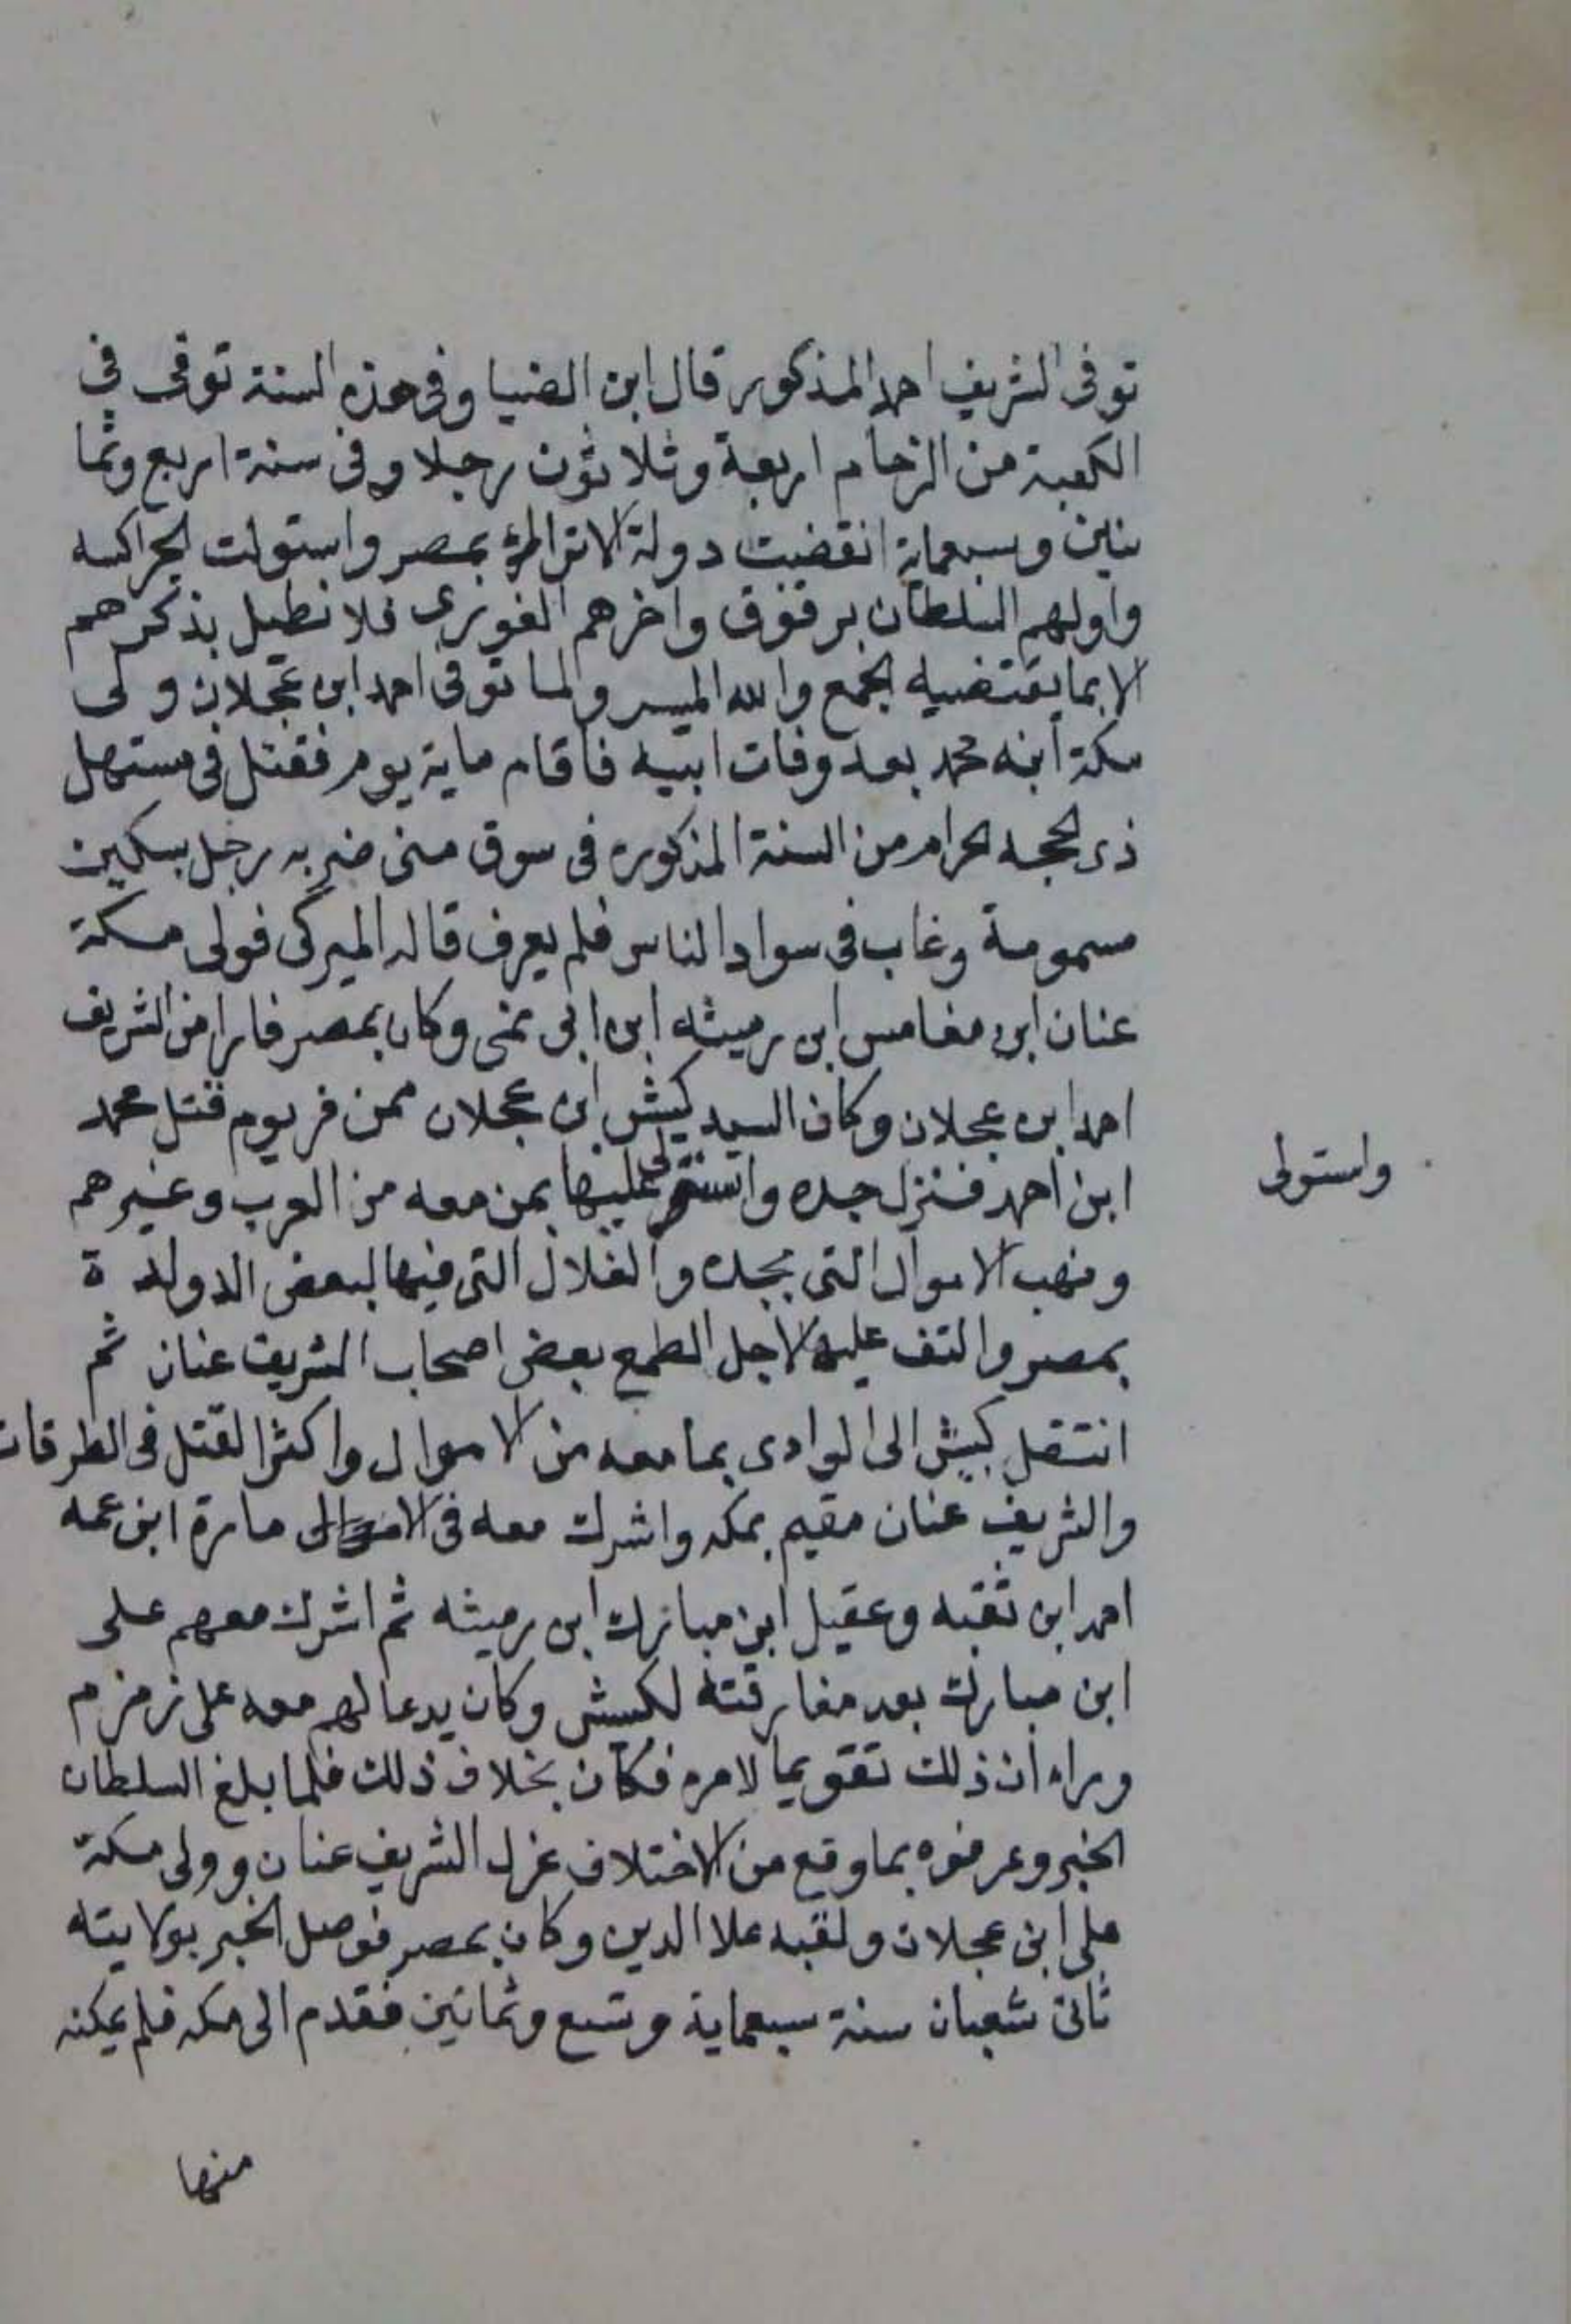 توفى الشريف احمد المذكور قال ابن الضيا وفى هذه السنة توفى فى
الكعبة من الزحام اربعة وثلاثون رجلا وفى سنة اربع وثما
نين وسبعماية انقضت دولة الاتراك بمصر واستولت الجراكسه
واولهم السلطان برقوق واخرهم الغورى فلا نطيل بذكرهم
الا بما يقتضيه الجمع والله الميسر ولما توفى احمد ابن عجلان ولى
مكة ابنه محمد بعد وفات ابيه فاقام ماية يوم فقتل فى مستهل
ذى الحجه الحرام من السنة المذكوره فى سوق منى ضربه رجل بسكين
مسمومة وغاب فى سواد الناس فلم يعرف قاله الميركى فولى مكة
عنان ابن مغامس ابن رميثه ابن ابى نمى وكان بمصر فارا من الشريف
احمد ابن عجلان وكان السيد كبيش ابن عجلان ممن فر يوم قتل محمد
ابن احمد فنزل جده واستولى عليها بمن معه من العرب وغيرهم
واستولى
ونهب الاموال التى بجده والغلال التى فيها لبعض الدولة
بمصر والتف عليه لاجل الطمع بعض اصحاب الشريف عنان ثم
انتقل كبيش الى الوادى بما معه من الاموال واكثر القتل فى الطرقات
والشريف عنان مقيم بمكه واشرك معه فى الامارة ابن عمه
احمد ابن ثقبه وعقيل ابن مبارك ابن رميثه ثم اشرك معهم على
ابن مبارك بعد مفارقته لكبيش وكان يدعا لهم معه على زمزم
وراء ان ذلك تقويما لامره فكان بخلاف ذلك فلما بلغ السلطان
الخبر وعرفوه بما وقع من الاختلاف عزل الشريف عنان وولى مكة
على ابن عجلان ولقبه علا الدين وكان بمصر فوصل الخبر بولايته
ثانى شعبان سنة سبعماية وتسع وثمانين فقدم الى مكه فلم يمكنه
منها